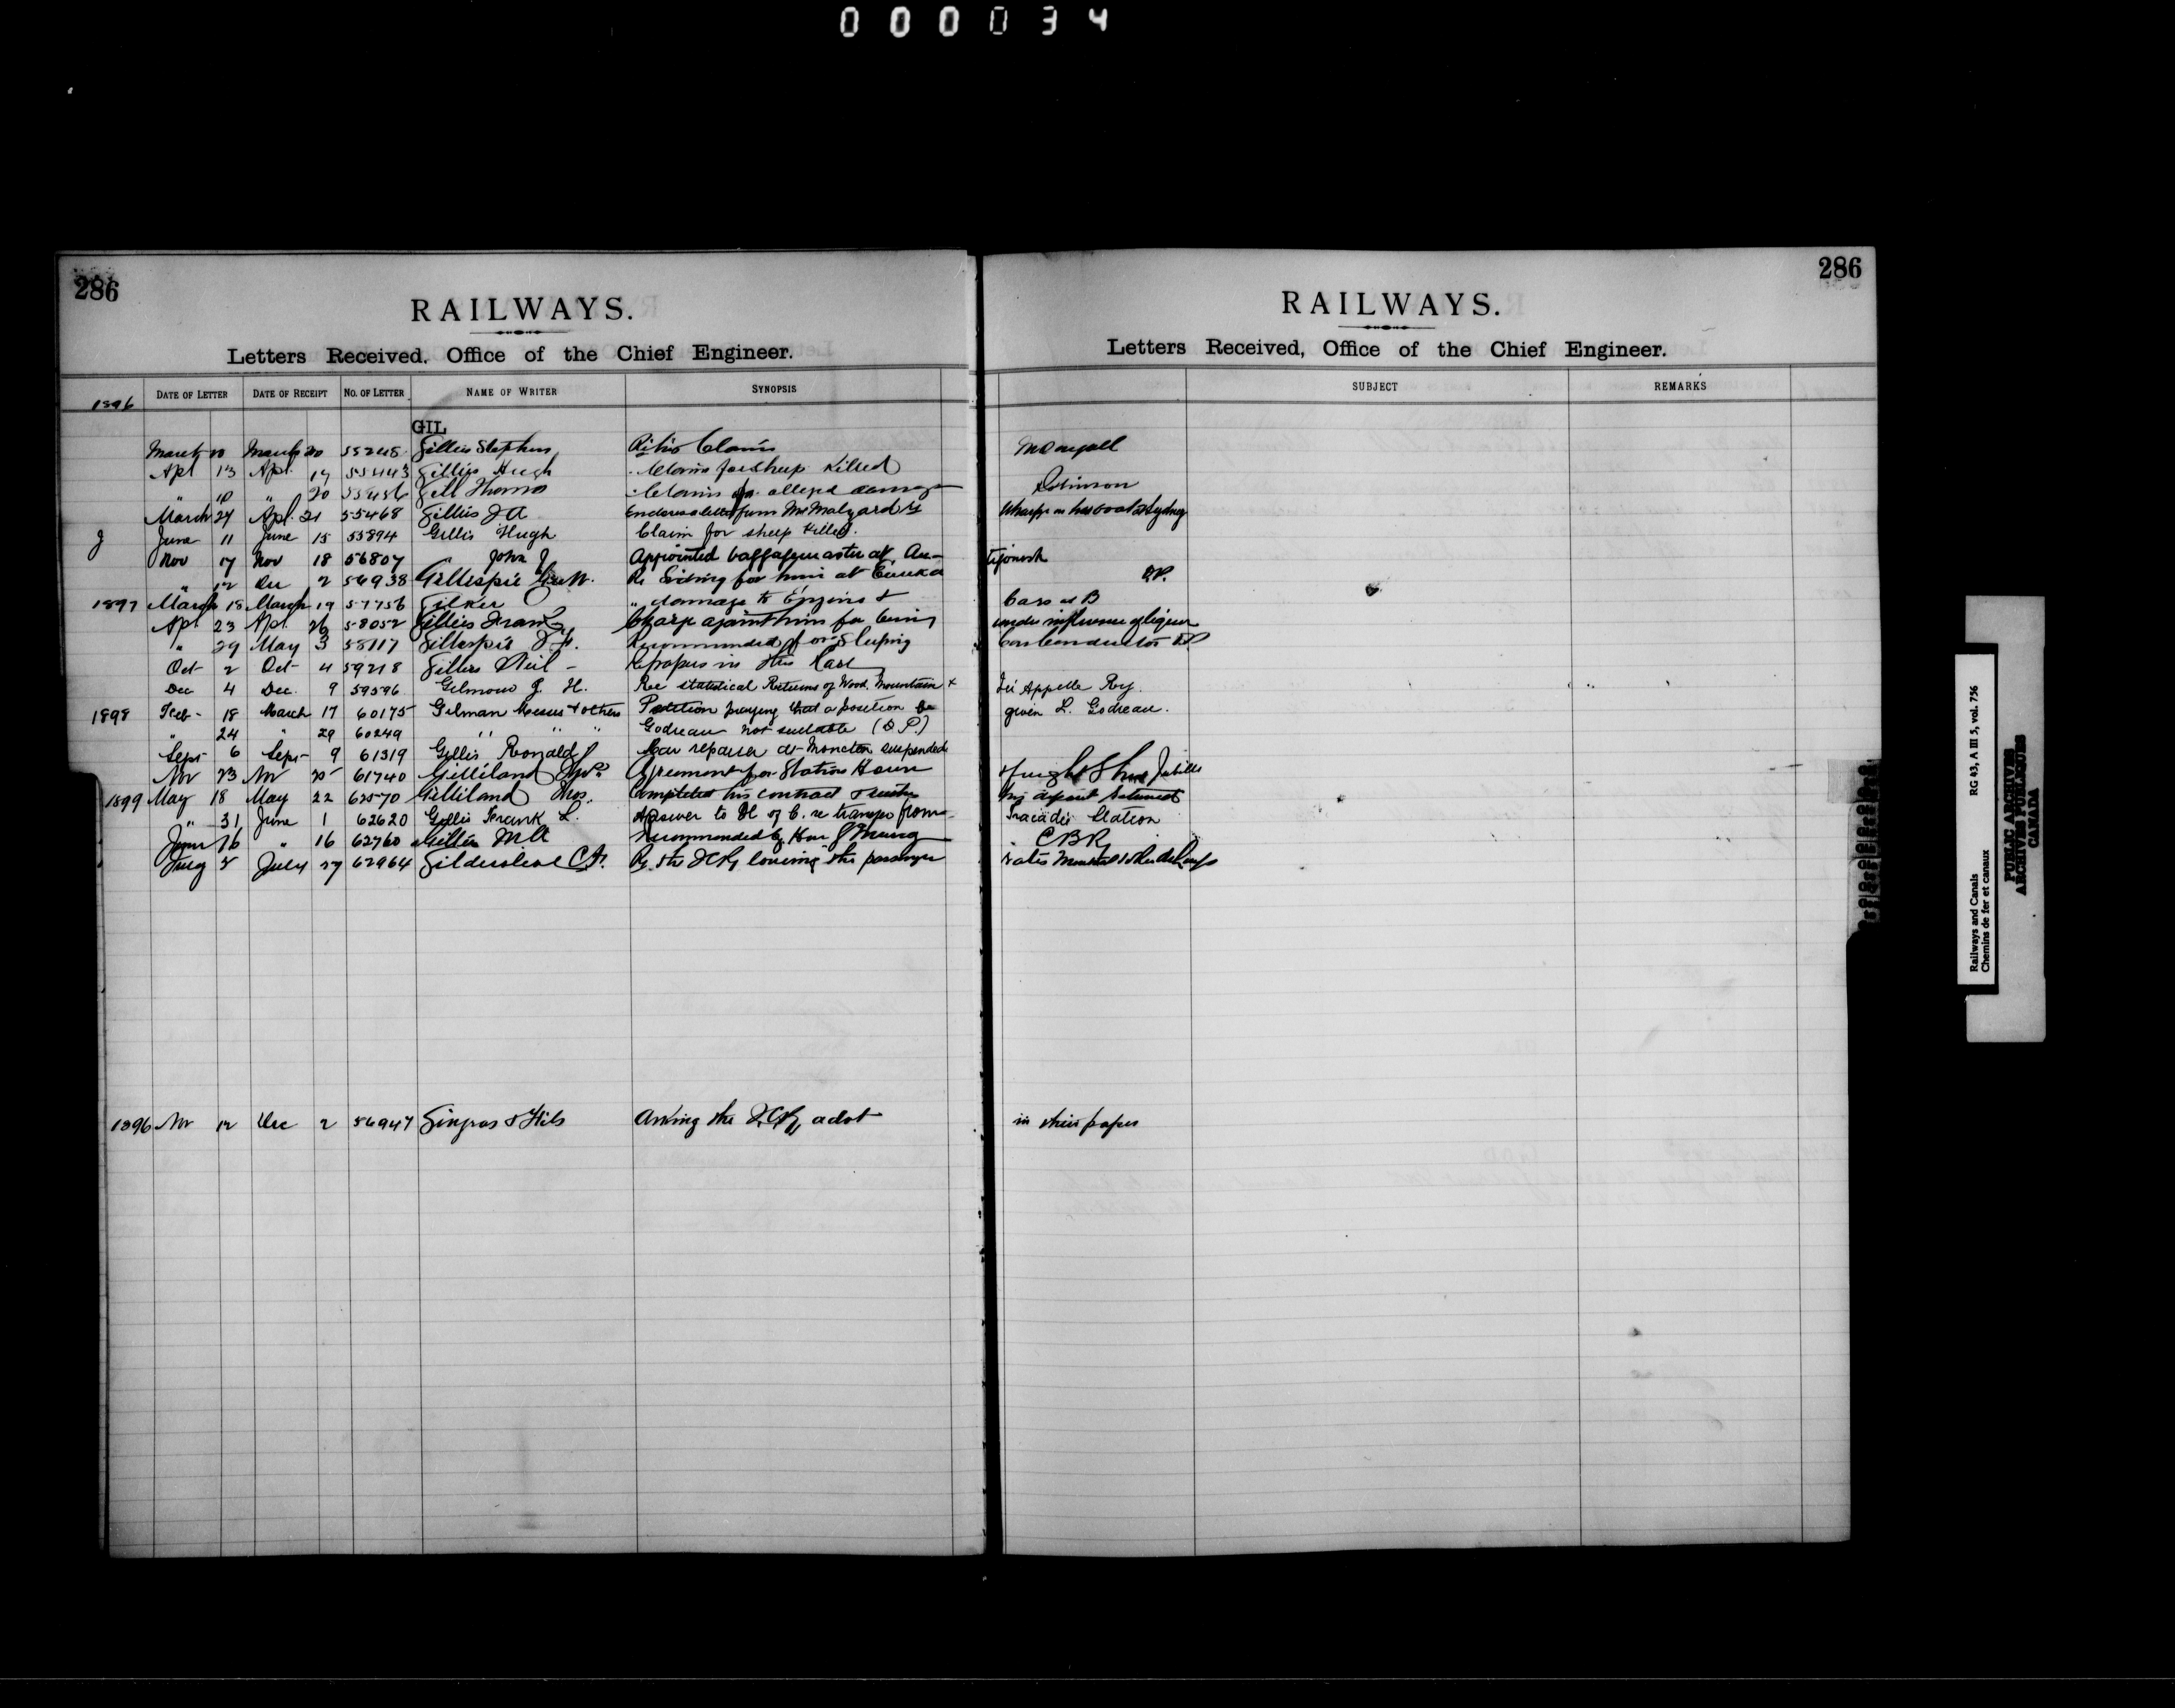 000034
286
RAILWAYS.
Letters Received, Office of the Chief Engineer.
1896 DATE OF LETTER DATE OF RECEIPT NO. OF LETTER NAME OF WRITER SYNOPSIS
GIL
March 20 March 20 55248 Gillies Stephen Claim
Apl 13 Apl. 17 55443 Gillies Hugh Claim for sheep killed
" " 20 55456 Gill Thomas Claim for alleged damage
March 24 Apl. 21 55468 Gillies J A Encloses letter from Mr Malzard re
J June 11 June 15 55894 Gillis Hugh Claim for sheep killed.
Nov 17 Nov 18 56807 " John J Appointed baggagemaster at An-
" 12 Dec 2 56938 Gillespie Re Siding for him at Eureka
1897 March 18 March 19 57756 Gilker " damage to Engine &
Apl 23 Apl. 26 58052 Gillies Frank L Charge against him for being
" 29 May 3 58117 Gillespie J. H. Recommended for Sleeping
Oct 2 Oct 4 59218 Gillies Neil - Ret papers in this Case
Dec 4 Dec. 9 59596 Gilmour J. H. Re statistical Returns of Wood Mountain &
1898 Feb - 18 March 17 60175 Gilman Messrs & others Petition praying that a position be
" 24 " 29 60249 " " " Godreau not suitable (D P)
Sept 6 Sept 9 61319 Gillis Ronald Car repairer at Moncton suspended
Nov 23 Nov 25 61740 Gilliland Thos Agreement for Station House
1899 May 18 May 22 62570 Gilliland Thos. Completed his contract &
" 31 June 1 62620 Gillis Frank L. Answer to H of C. re transfer from
June 16 " 16 62760 Gillies M A Recommended by Hon
Aug July 27 62964 Gildersleeve C F. Re the ICRy lowering the passenger
1896 Nov 12 Dec 2 56947 Gingras & Fils Asking the I.C.Ry advt
286
RAILWAYS.
Letters Received, Office of the Chief Engineer.
SUBJECT REMARKS
McDougall
Robinson
Wharf Sydney
tigonish
D.P.
Cars at B
under influence of liquor
Car Conductor DP
Qu'Appelle Ry.
given L. Godreau.
Freight Shed Jubilee
deposit returned
Tracadie Station
C B R
rates Montreal
in their paper
Railways and Canals
Chemins de fer et canaux
RG 43, A III 5, vol. 756
PUBLIC ARCHIVES
ARCHIVES PUBLIQUES
CANADA